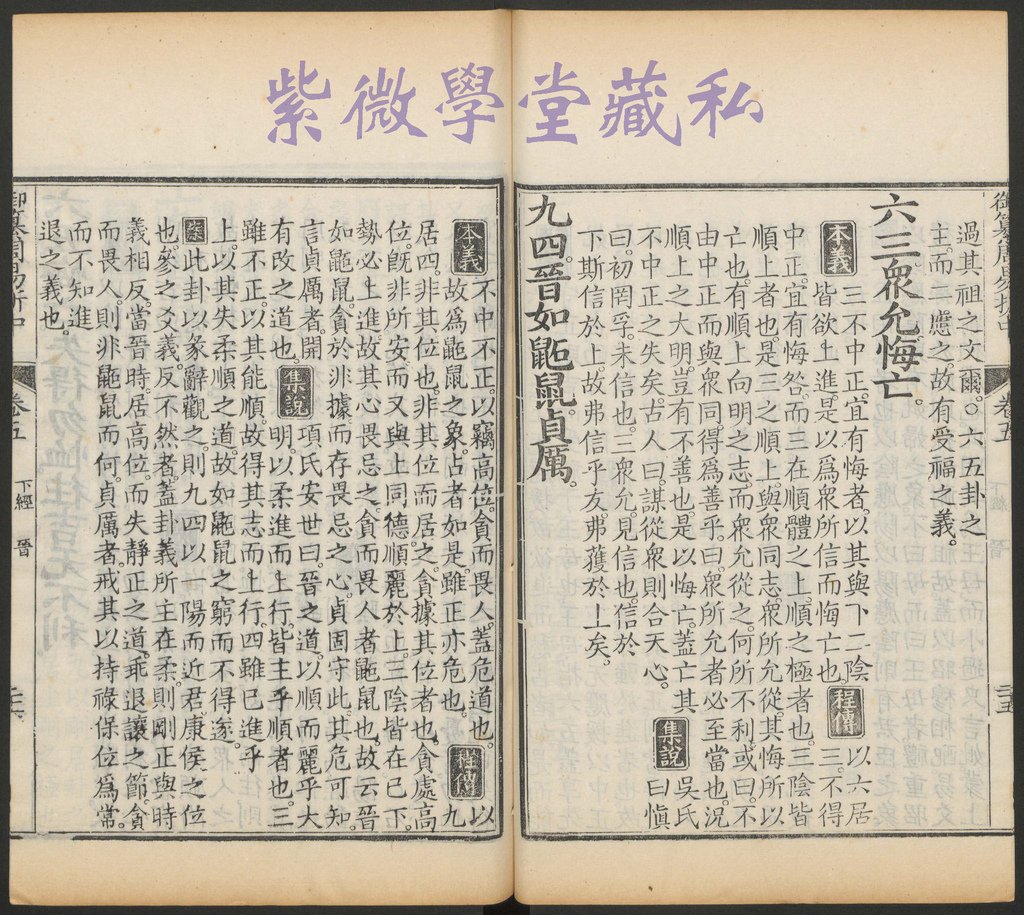 紫微學堂藏私
御纂周易折中 卷五 下經 晉 二十五
過其祖之文爾。○六五卦之
主。而二應之。故有受福之義。
六三衆允悔亡。
本義 三不中正。宜有悔者。以其與下二陰
皆欲上進。是以爲衆所信而悔亡也。
程傳 以六居
三。不得
中正。宜有悔咎。而三在順體之上。順之極者也。三陰皆
順上者也。是三之順上。與衆同志。衆所允從。其悔所以
亡也。有順上向明之志。而衆允從之。何所不利。或曰。不
由中正而與衆同。得爲善乎。曰。衆所允者。必至當也。況
順上之大明。豈有不善也。是以悔亡。蓋亡其
不中正之失矣。古人曰。謀從衆則合天心。
集說 吳氏
曰愼
曰。初罔孚。未信也。三衆允。見信也。信於
下斯信於上。故弗信乎友。弗獲於上矣。
九四晉如鼫鼠貞厲。
本義 不中不正。以竊高位。貪而畏人。蓋危道也。
故爲鼫鼠之象。占者如是。雖正亦危也。
程傳 以
九
居四。非其位也。非其位而居之。貪據其位者也。貪處高
位。旣非所安。而又與上同德。順麗於上。三陰皆在已下。
勢必上進。故其心畏忌之。貪而畏人者。鼫鼠也。故云晉
如鼫鼠。貪於非據。而存畏忌之心。貞固守此。其危可知。
言貞厲者。開
有改之之道也。
集說 項氏安世曰。晉之道。以順而麗乎大
明。以柔進而上行。皆主乎順者也。三
雖不正。以其能順。故得其志而上行。四雖已進乎
上。以其失柔順之道。故如鼫鼠之窮而不得遂。
案 此卦以彖辭觀之。則九四以一陽而近君。康侯之位
也。參之爻義。反不然者。蓋卦義所主在柔。則剛正與時
義相反。當晉時。居高位。而失靜正之道。乖退讓之節。貪
而畏人。則非鼫鼠而何。貞厲者。戒其以持祿保位爲常。
而不知進
退之義也。
御纂周易折中 卷五 下經 晉 二十六